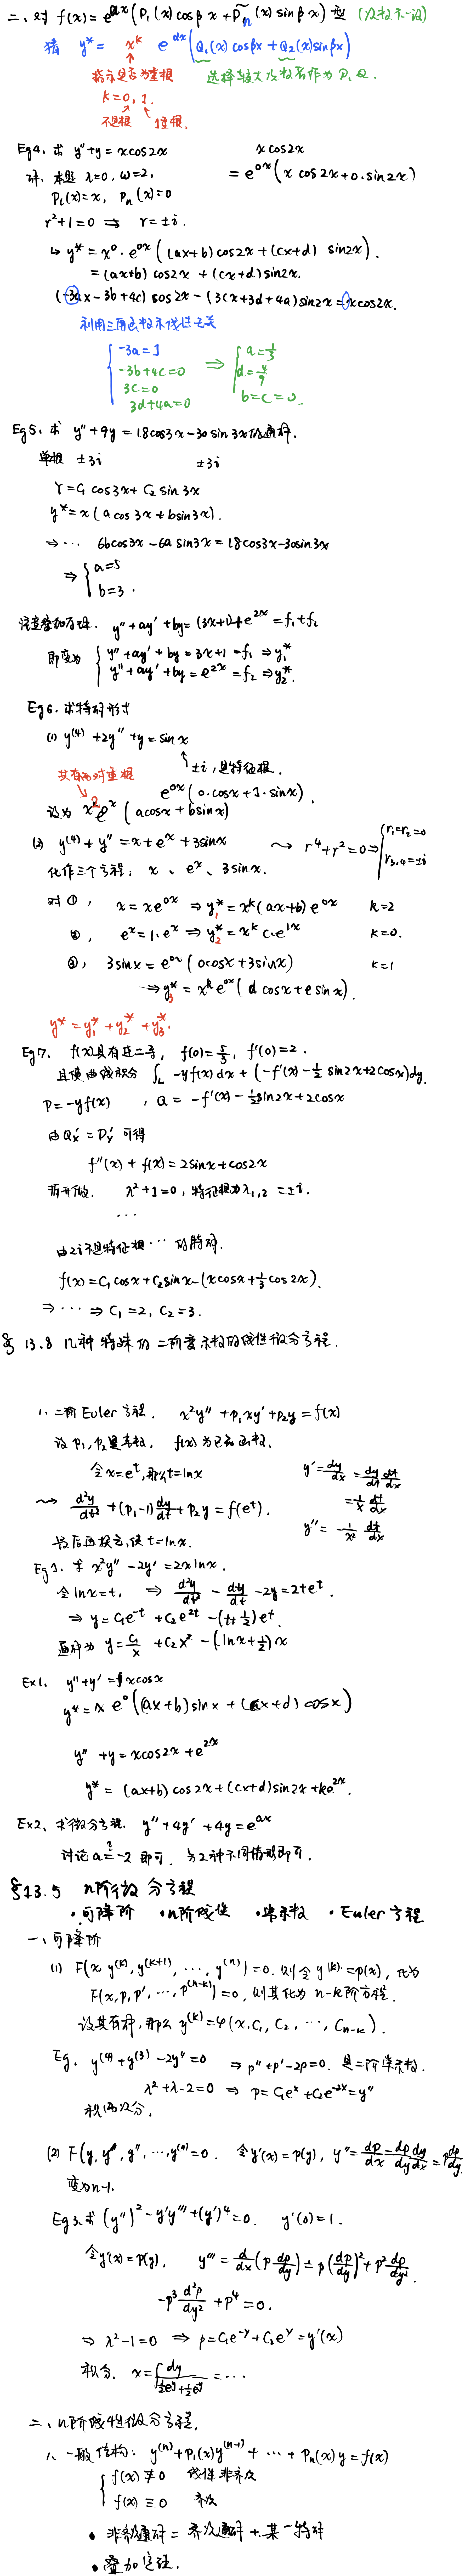 二、对 f(x) = e^{αx}(P_l(x) cosβx + P̃_n(x) sinβx) 型 (次数不一设)
猜 y* = x^k e^{αx}(Q_1(x) cosβx + Q_2(x) sinβx)
指示是否为重根 选择较大次数者作为 P, Q.
k = 0, 1.
不是根 1重根.
Eg4. 求 y''+y = x cos2x
x cos2x
解. 本题 λ=0, ω=2,
= e^{0x}(x cos2x + 0·sin2x)
P_l(x)=x, P_n(x)=0
r²+1=0 ⇒ r=±i.
↳ y* = x^0 · e^{0x}((ax+b) cos2x + (cx+d) sin2x).
= (ax+b) cos2x + (cx+d) sin2x.
(-3ax-3b+4c) cos2x - (3cx+3d+4a) sin2x = x cos2x.
利用三角函数系线性无关
{ -3a=1
-3b+4c=0
3c=0
3d+4a=0
⇒ { a=1/3
d=4/9
b=c=0.
Eg5. 求 y''+9y = 18cos3x - 30sin3x 的通解.
单根 ±3i ±3i
Y = C_1 cos3x + C_2 sin3x
y* = x(a cos3x + b sin3x).
⇒ ··· 6b cos3x - 6a sin3x = 18cos3x - 30sin3x
⇒ { a=5
b=3.
注意叠加原理. y''+ay'+by = (3x+1)+e^{2x} = f_1+f_2
即变为 { y''+ay'+by = 3x+1 = f_1 ⇒ y_1*
y''+ay'+by = e^{2x} = f_2 ⇒ y_2*.
Eg6. 求特解形式
(1) y^{(4)}+2y''+y = sinx
±i, 是特征根.
共有两对重根
e^{0x}(0·cosx+1·sinx).
设为 x² e^{0x}(a cosx + b sinx)
(2) y^{(4)}+y'' = x+e^x+3sinx ⇝ r⁴+r²=0 ⇒ { r_1=r_2=0
r_{3,4}=±i
化作三个方程: x、e^x、3sinx.
对①, x = xe^{0x} ⇒ y_1* = x^k(ax+b)e^{0x} k=2
②, e^x = 1·e^x ⇒ y_2* = x^k c·e^{1x} k=0.
③, 3sinx = e^{0x}(0cosx+3sinx) k=1
⇒ y_3* = x^k e^{0x}(d cosx + e sinx).
y* = y_1* + y_2* + y_3*.
Eg7. f(x)具有连二导, f(0)=5/3, f'(0)=2.
且使曲线积分 ∫_L -yf(x)dx + (-f'(x) - 1/2 sin2x + 2cosx)dy.
P = -yf(x), Q = -f'(x) - 1/2 sin2x + 2cosx
由 Q_x' = P_y' 可得
f''(x)+f(x) = 2sinx + cos2x
λ²+1=0, 特征根为 λ_{1,2}=±i.
···
由2i不是特征根 ··· 的特解.
f(x) = C_1 cosx + C_2 sinx - (x cosx + 1/3 cos2x).
⇒ ··· ⇒ C_1=2, C_2=3.
§13.8 几种特殊的二阶变系数的线性微分方程.
1. 二阶Euler方程. x²y''+p_1xy'+p_2y = f(x)
设 p_1, p_2 是常数, f(x)为已知函数.
令 x=e^t, 那么 t=lnx
y' = dy/dx = dy/dt dt/dx
⇝ d²y/dt² + (p_1-1) dy/dt + p_2y = f(e^t).
= 1/x dt/dx
最后再换元, 使 t=lnx.
y'' = -1/x² dt/dx
Eg1. 求 x²y''-2y' = 2xlnx.
令 lnx=t, ⇒ d²y/dt² - dy/dt - 2y = 2te^t.
⇒ y = C_1e^{-t} + C_2e^{2t} - (t+1/2)e^t.
通解为 y = C_1/x + C_2x² - (lnx+1/2)x
Ex1. y''+y' = xcosx
y* = x e^0((ax+b) sinx + (cx+d) cosx)
y''+y = xcos2x + e^{2x}
y* = (ax+b) cos2x + (cx+d) sin2x + ke^{2x}.
Ex2. 求微分方程. y''+4y'+4y = e^{ax}
讨论 a ≟ -2 即可. 分2种不同情形即可.
§13.5 n阶微分方程
·可降阶 ·n阶线性 ·常系数 ·Euler方程
一、可降阶
(1) F(x, y^{(k)}, y^{(k+1)}, ···, y^{(n)})=0. 则令 y^{(k)}=p(x), 化为
F(x, p, p', ···, p^{(n-k)})=0, 则其化为 n-k阶方程.
设其有解, 那么 y^{(k)} = φ(x, C_1, C_2, ···, C_{n-k}).
Eg. y^{(4)}+y^{(3)}-2y''=0 ⇒ p''+p'-2p=0. 是二阶常系数.
λ²+λ-2=0 ⇒ p=C_1e^x+C_2e^{-2x}=y''
积两次分.
(2) F(y, y', y'', ···, y^{(n)})=0. 令 y'(x)=p(y), y''=dp/dx=dp/dy dy/dx=p dp/dy.
变为n-1.
Eg3. 求 (y'')²-y'y'''+(y')⁴=0. y'(0)=1.
令 y'(x)=p(y), y'''=d/dx(p dp/dy)=p(dp/dy)²+p² d²p/dy².
-p³ d²p/dy² + p⁴ = 0.
⇒ λ²-1=0 ⇒ p=C_1e^{-y}+C_2e^y=y'(x)
积分. x=∫ dy/(1/2 e^y + 1/2 e^{-y}) = ···
二、n阶线性微分方程.
1. 一般结构: y^{(n)}+P_1(x)y^{(n-1)}+ ··· +P_n(x)y=f(x)
{ f(x)≢0 线性非齐次
f(x)≡0 齐次
• 非齐通解 = 齐次通解 + 某一特解
• 叠加定理.